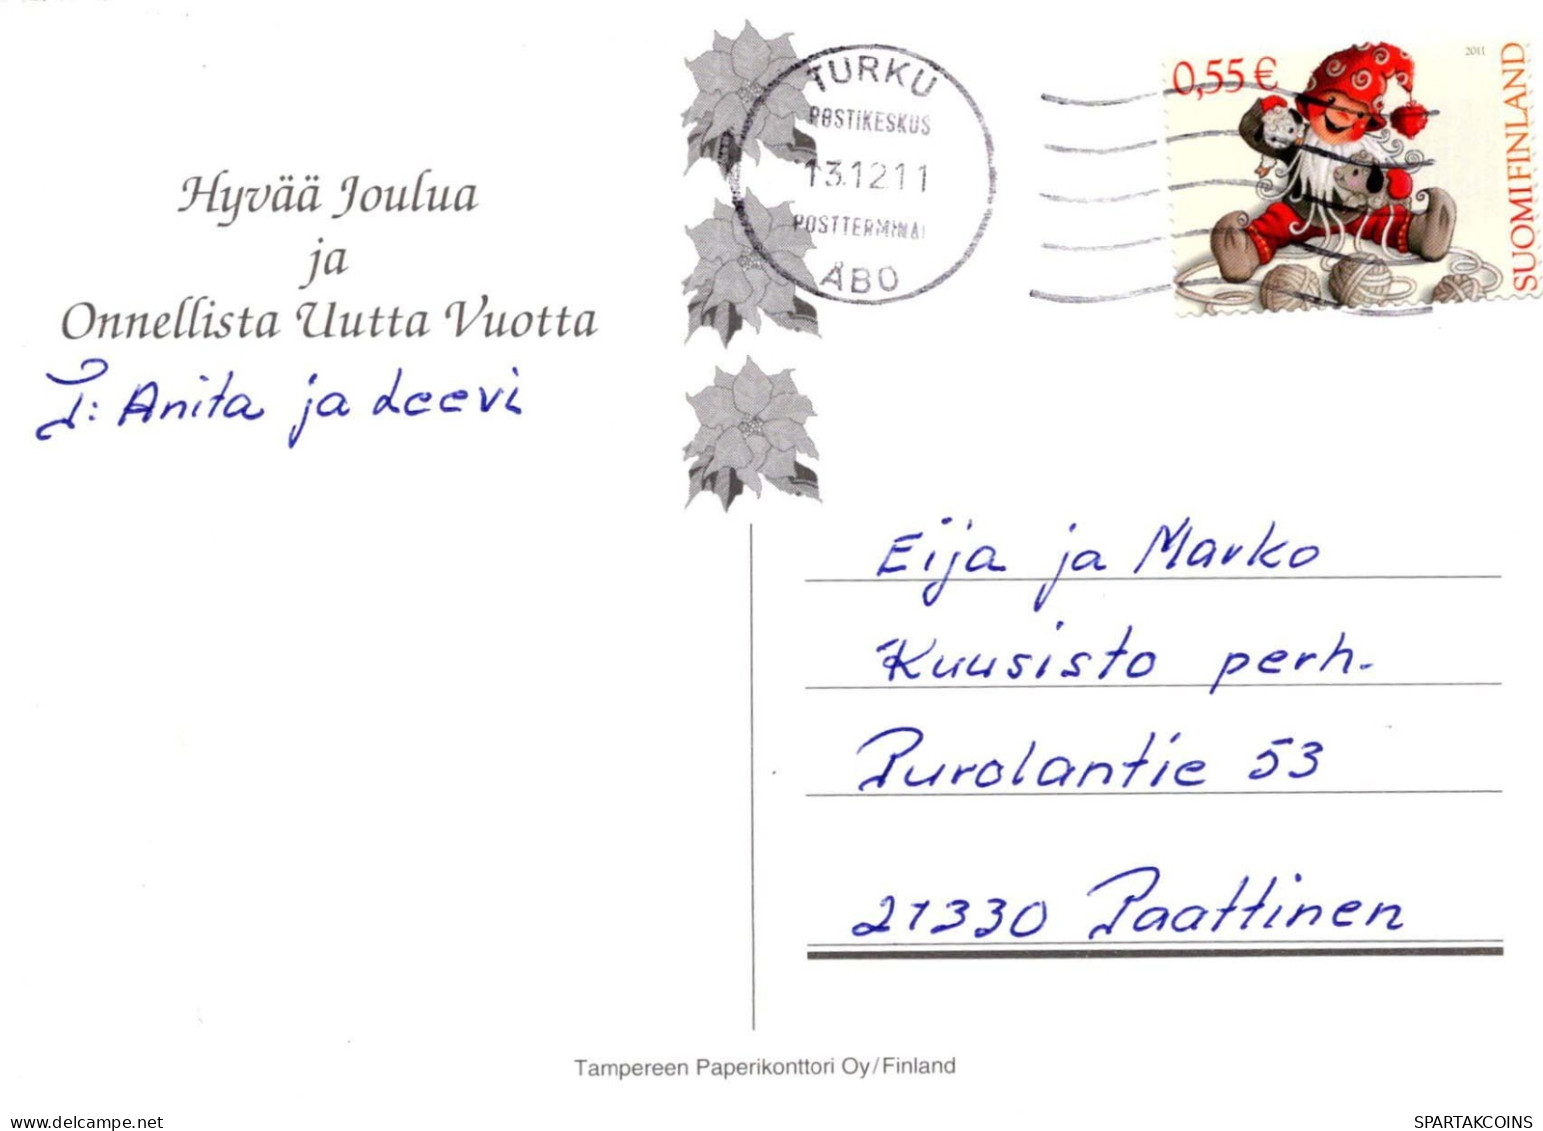 Hyvää Joulua
ja
Onnellista Uutta Vuotta
T: Anita ja Leevi
TURKU
POSTIKESKUS
13.12.11
POSTTERMINAL
ÅBO
0,55 €
2011
SUOMI FINLAND
Eija ja Marko
Kuusisto perh.
Purolantie 53
21330 Paattinen
Tampereen Paperikonttori Oy/Finland
SPARTAKCOINS